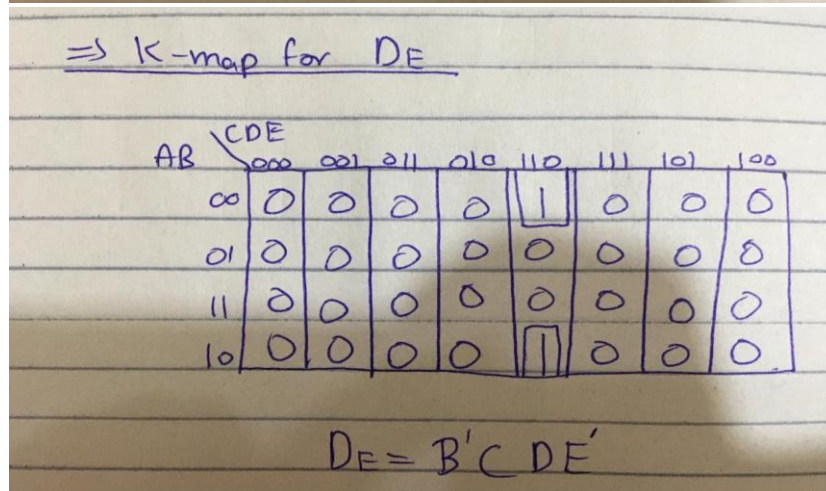 ⇒ K-map for DE
CDE
AB 000 001 011 010 110 111 101 100
00 0 0 0 0 1 0 0 0
01 0 0 0 0 0 0 0 0
11 0 0 0 0 0 0 0 0
10 0 0 0 0 1 0 0 0
DE = B'C D E'